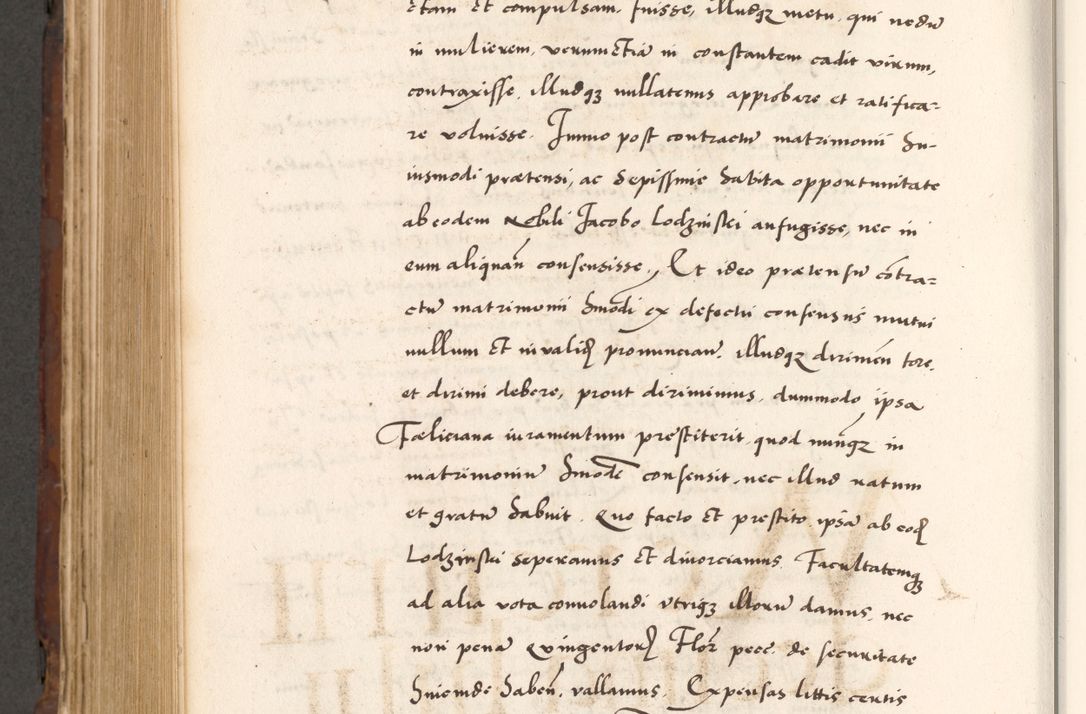 ctam et compulsam fuisse, illudqȝ metu, qui nedū
in mulierem, verumetiā in constantem cadit virum,
contraxisse, illudqȝ nullatenus approbare et ratifica=
re voluisse. Immo post contractū matrimonii hu-
iusmodi prætensi, ac sepissime habita opportunitate
ab eodem Nobili Jacobo Lodzinski aufugisse, nec in
eum aliquan̄ consensisse, Et ideo prætensū cōtra=
ctū matrimonii hmōdi ex defectu consensus mutui
nullum et invalid pronunciam̄, illudqȝ dirimen̄ fore,
et dirimi debere, prout dirimimus, dummodo ipsa
Fæliciana iuramentum prestiterit, quod nunq̄ȝ in
matrimoniū hmōdi consensit, nec illud ratum
et gratū habuit. Quo facto et prestito ipsā ab eod
Lodzinski seperamus et divorciamus. Facultatemqȝ
ad alia vota convolandi utriqȝ illorū damus, nec
non penā Quingentor Flor̄ pecc. de securitate
hincinde haben̄, vallamus. Expensas littis certis